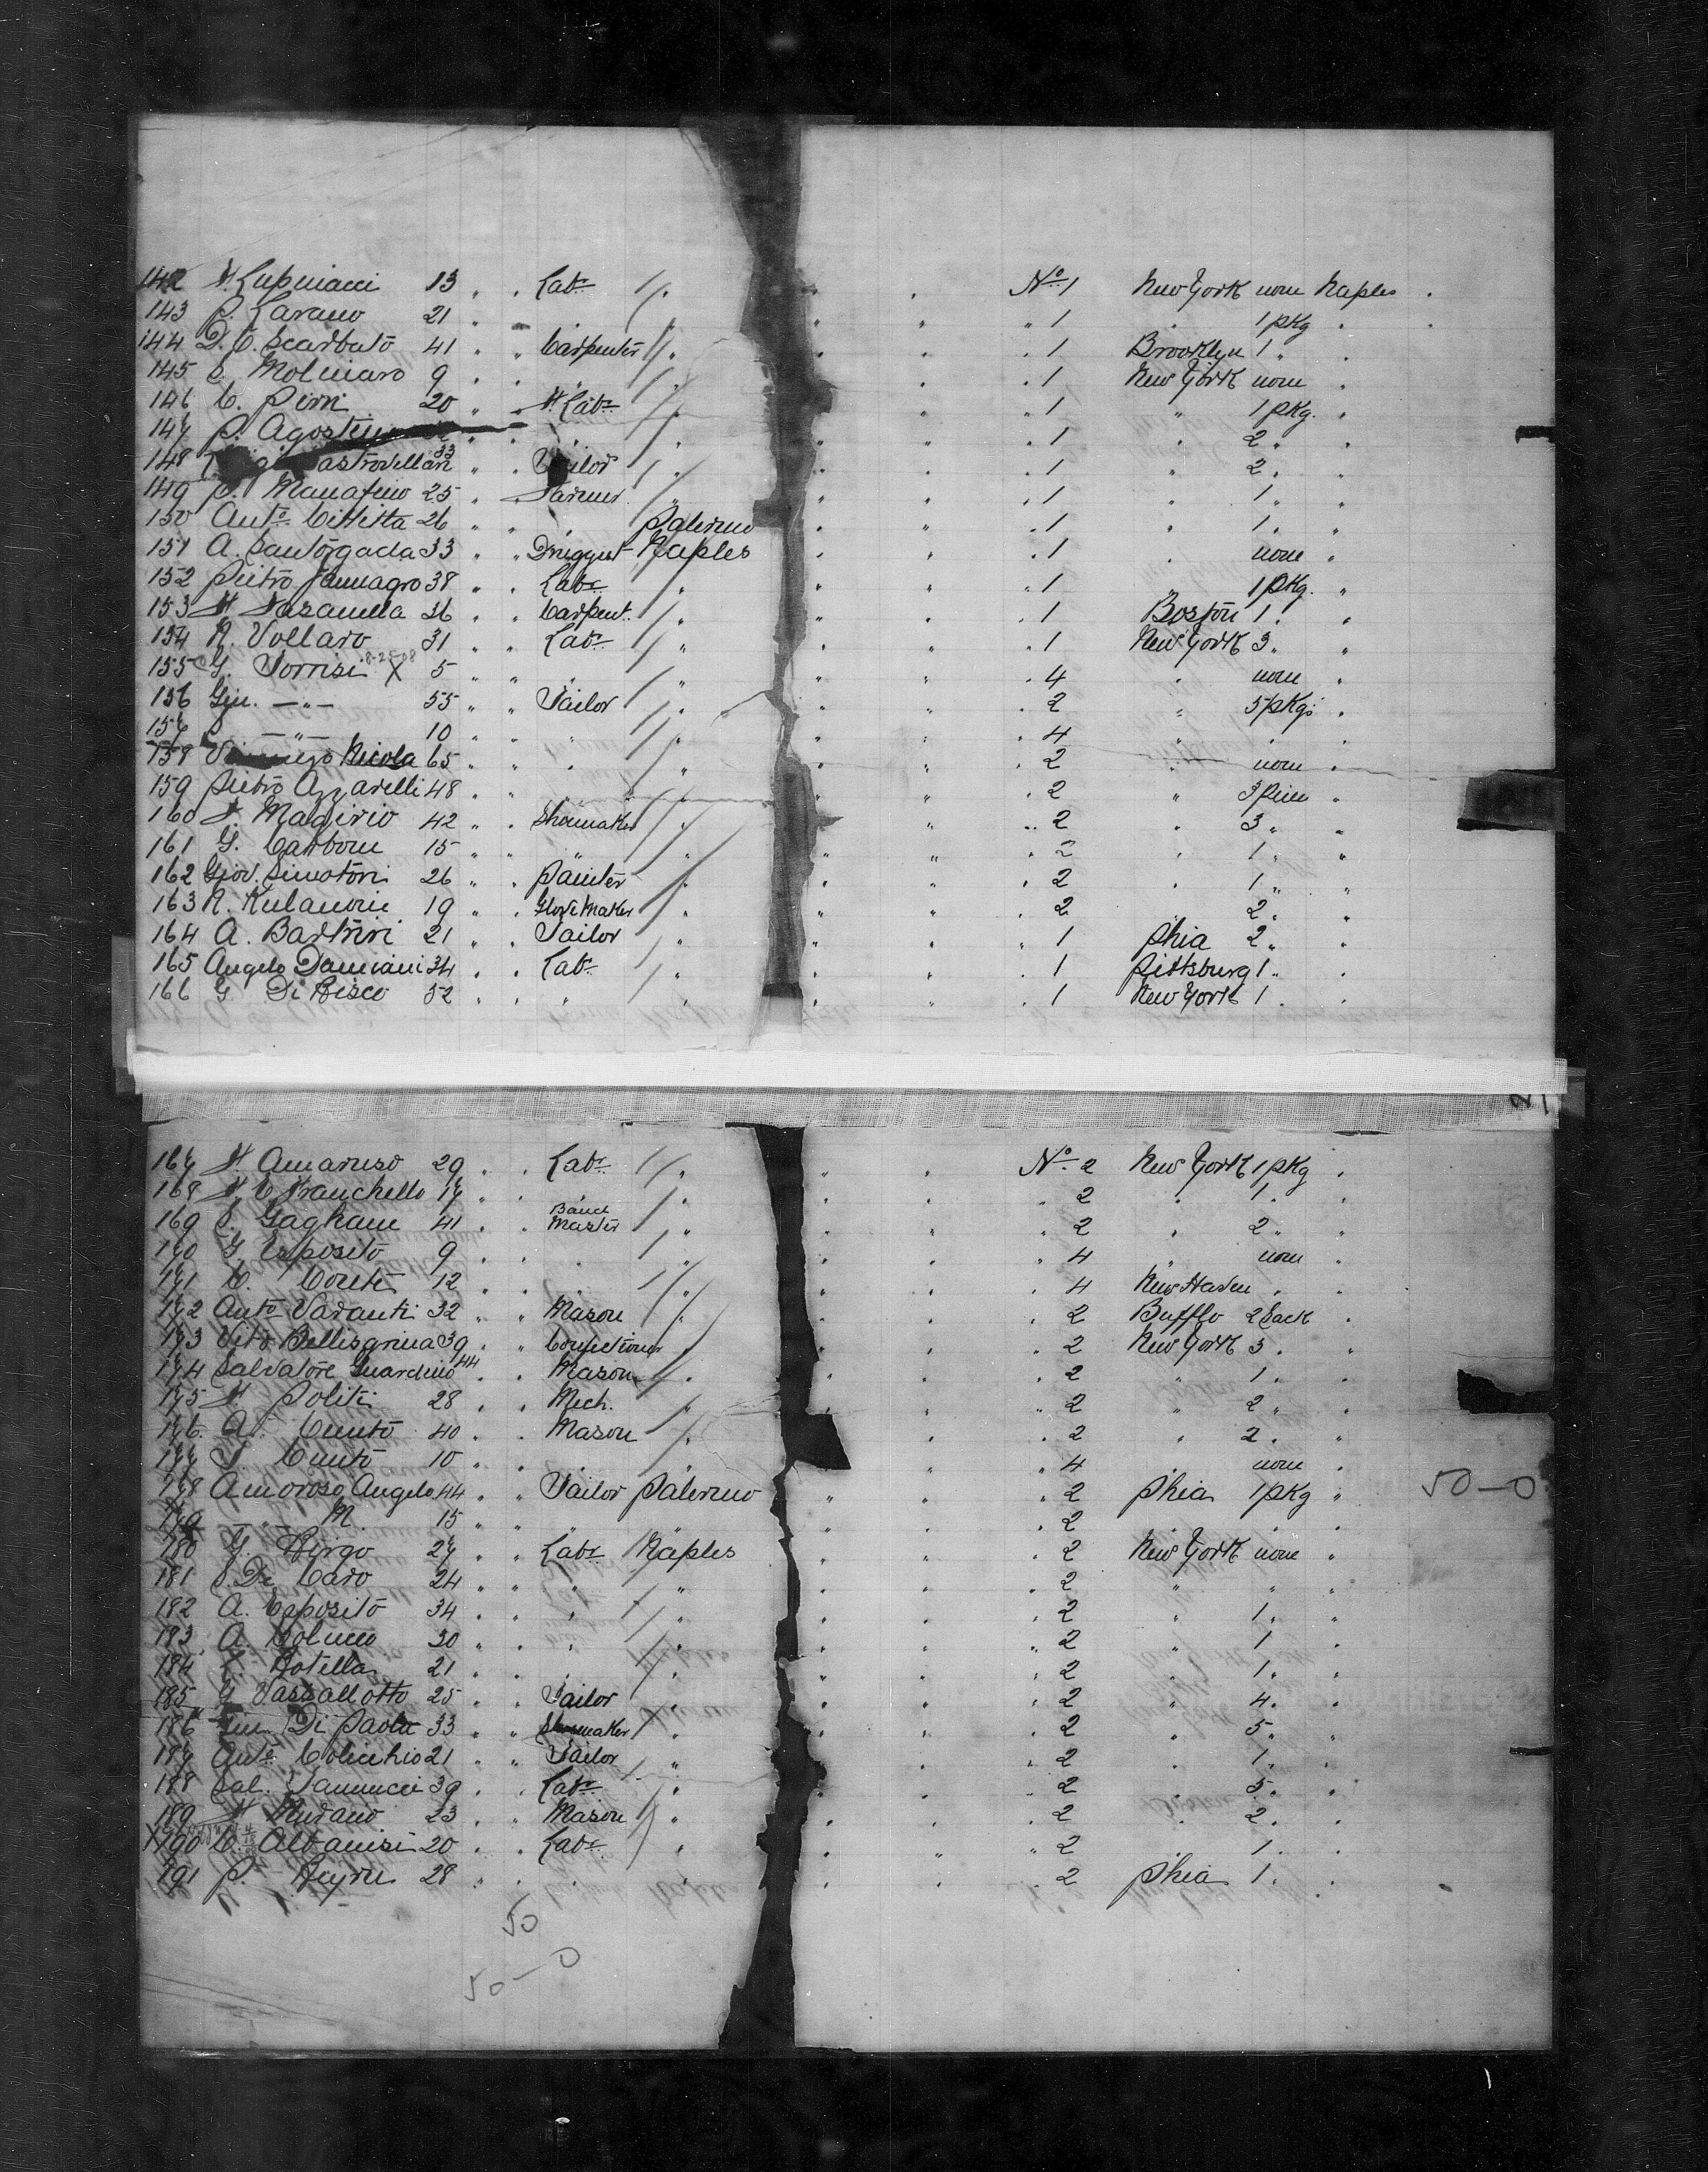 142 F. Lupinacci 13 " " Labr " " " No 1 New York none Naples "
143 P. Larano 21 " " " " " " " 1 " 1 pkg " "
144 D. C. Scarbato 41 " " Carpenter " " " " 1 Brooklyn 1 " "
145 S. Molinaro 9 " " " " " " " 1 New York none "
146 C. Pirri 20 " " F. Labr " " " " 1 " 1 pkg. "
147 P. Agostino " " " " " " " 1 " 2 " "
148 33 " " Tailor " " " " 1 " 2 " "
149 P. Manafino 25 " " Farmer " " " " 1 " 1 " "
150 Anto. Cittitta 26 " " " Palermo " " " 1 " 1 " "
151 A. Santorgada 33 " " Druggist Naples " " " 1 " none "
152 Pietro Jannagro 38 " " Labr " " " " 1 " 1 pkg. "
153 F. 36 " " Carpent. " " " " 1 Boston 1 " "
154 R. Vollaro 31 " " Labr " " " " 1 New York 3 " "
155 G. Torrisi X 8-25-08 5 " " " " " " " 4 " none "
156 Giu. — " — 55 " " Tailor " " " " 2 " 5 pkgs "
157 — " — 10 " " " " " " " 4 " " "
158 Nicola 65 " " " " " " " 2 " none "
159 Pietro Azzarelli 48 " " " " " " " 2 " 3 Piece "
160 F. Magirio 42 " " Shoemaker " " " " 2 " 3 " "
161 G. Carbone 15 " " " " " " " 2 " 1 " "
162 Giov. Simatori 26 " " Painter " " " " 2 " 1 " "
163 R. Kulanoni 19 " " Glove Maker " " " " 2 " 2 " "
164 A. Bartriri 21 " " Tailor " " " " 1 Phia 2 " "
165 Angelo Damiani 34 " " Labr " " " " 1 Pittsburg 1 " "
166 G. Di Risco 52 " " " " " " " 1 New York 1 " "
167 F. Amaruso 29 " " Labr " " " No. 2 New York 1 pkg "
168 F. C. Franchello 17 " " " " " " " 2 " 1 " "
169 S. Gagliane 41 " " Band Master " " " " 2 " 2 " "
170 G. Esposito 9 " " " " " " " 4 " none "
171 C. Conti 12 " " " " " " " 4 New Haven " "
172 Anto. Varanti 32 " " Mason " " " " 2 Bufflo 2 Sack "
173 Vito Bellisarina 39 " " Confectioner " " " " 2 New York 3 " "
174 Salvatore Guardino 44 " " Mason " " " " 2 " 1 " "
175 F. Politi 28 " " Mech. " " " " 2 " 2 " "
176 A. Cunto 40 " " Mason " " " 2 " 2 " "
177 S. Cunto 10 " " " " " " 4 " none "
178 Amoroso Angelo 44 " " Tailor Palermo " " " 2 Phia 1 pkg " 50—0
179 — " — M. 15 " " " " " " " 2 " " "
180 G. Virgo 27 " " Labr Naples " " " 2 New York none "
181 S. De Caro 24 " " " " " " " 2 " " "
182 A. Esposito 34 " " " " " " " 2 " 1 " "
183 A. Colucco 30 " " " " " " " 2 " 1 "
184 Rotella 21 " " " " " " " 2 " 1 " "
185 G. Vassallotto 25 " " Tailor " " " " 2 " 4 " "
186 Giu. Di Paola 33 " " Shoemaker " " " " 2 " 5 " "
187 Anto. Colicchio 21 " " Tailor " " " " 2 " 1 " "
188 Sal. Iannucci 39 " " Labr " " " " 2 " 5 " "
189 F. Murano 23 " " Mason " " " " 2 " 2 " "
X190 C. Albanisi 20 " " Labr " " " " 2 " 1 " "
191 P. 28 " " " " " " " 2 Phia 1 " "
50
50—0